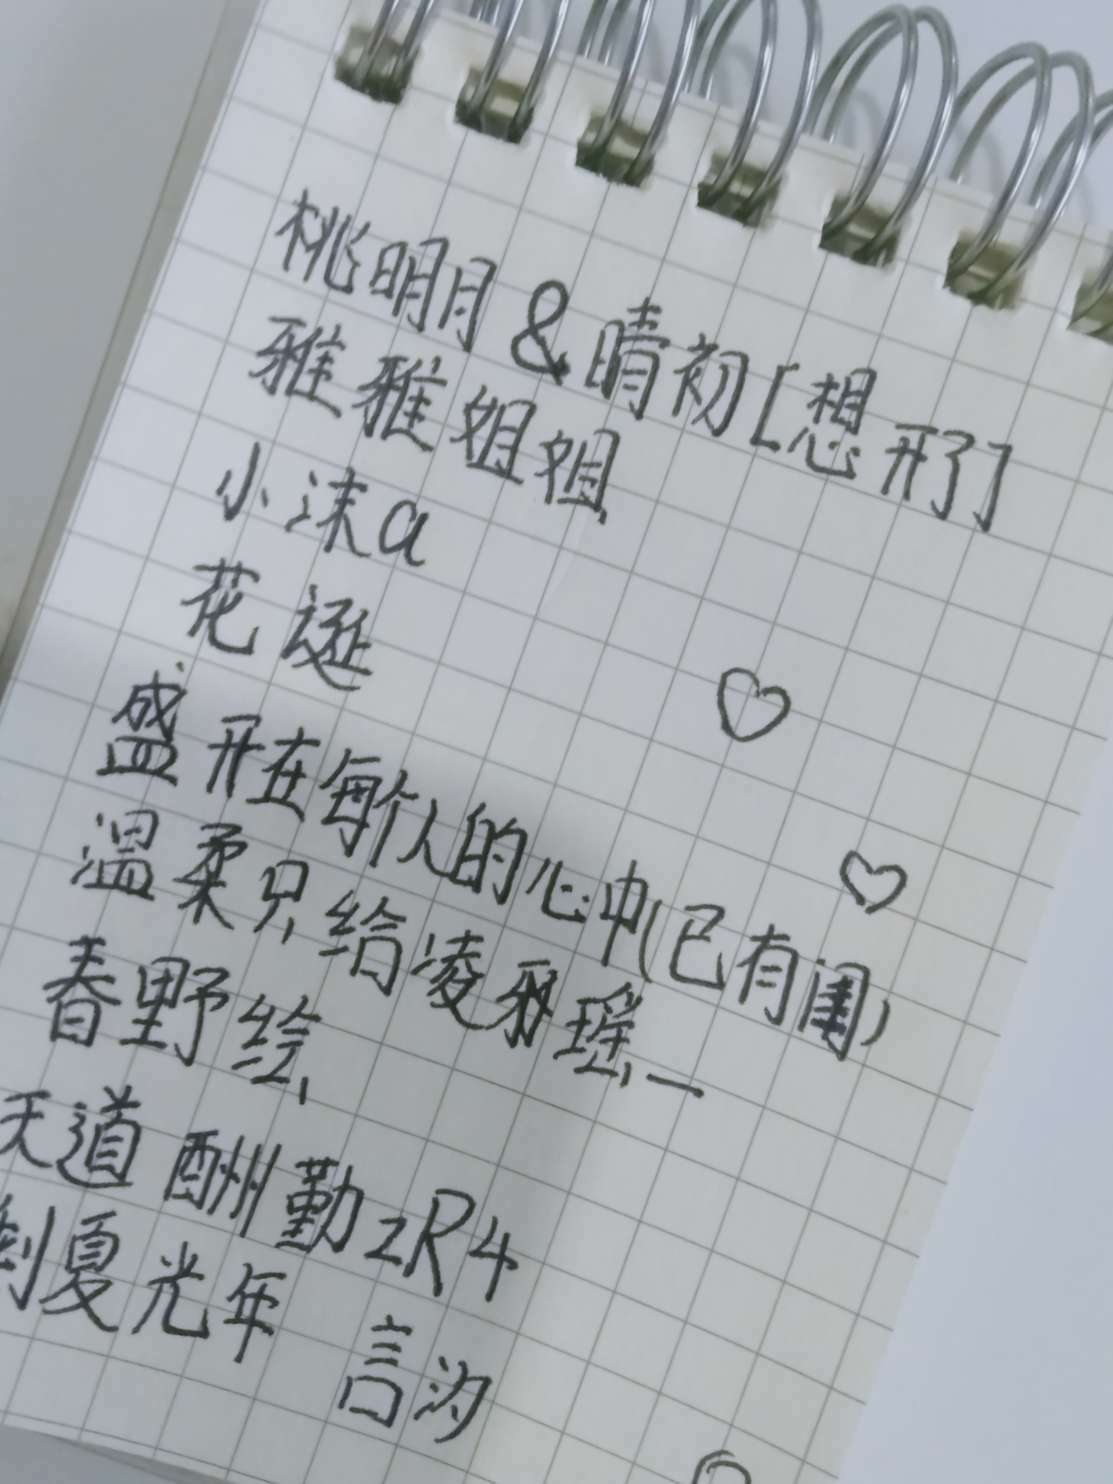 桃明月&晴初[想开了]
雅雅姐姐
小沫a
花诞
盛开在每个人的心中(已有闺)
温柔只给凌邪瑶_
春野绘
天道酬勤ZR4
刻夏光年 言沩